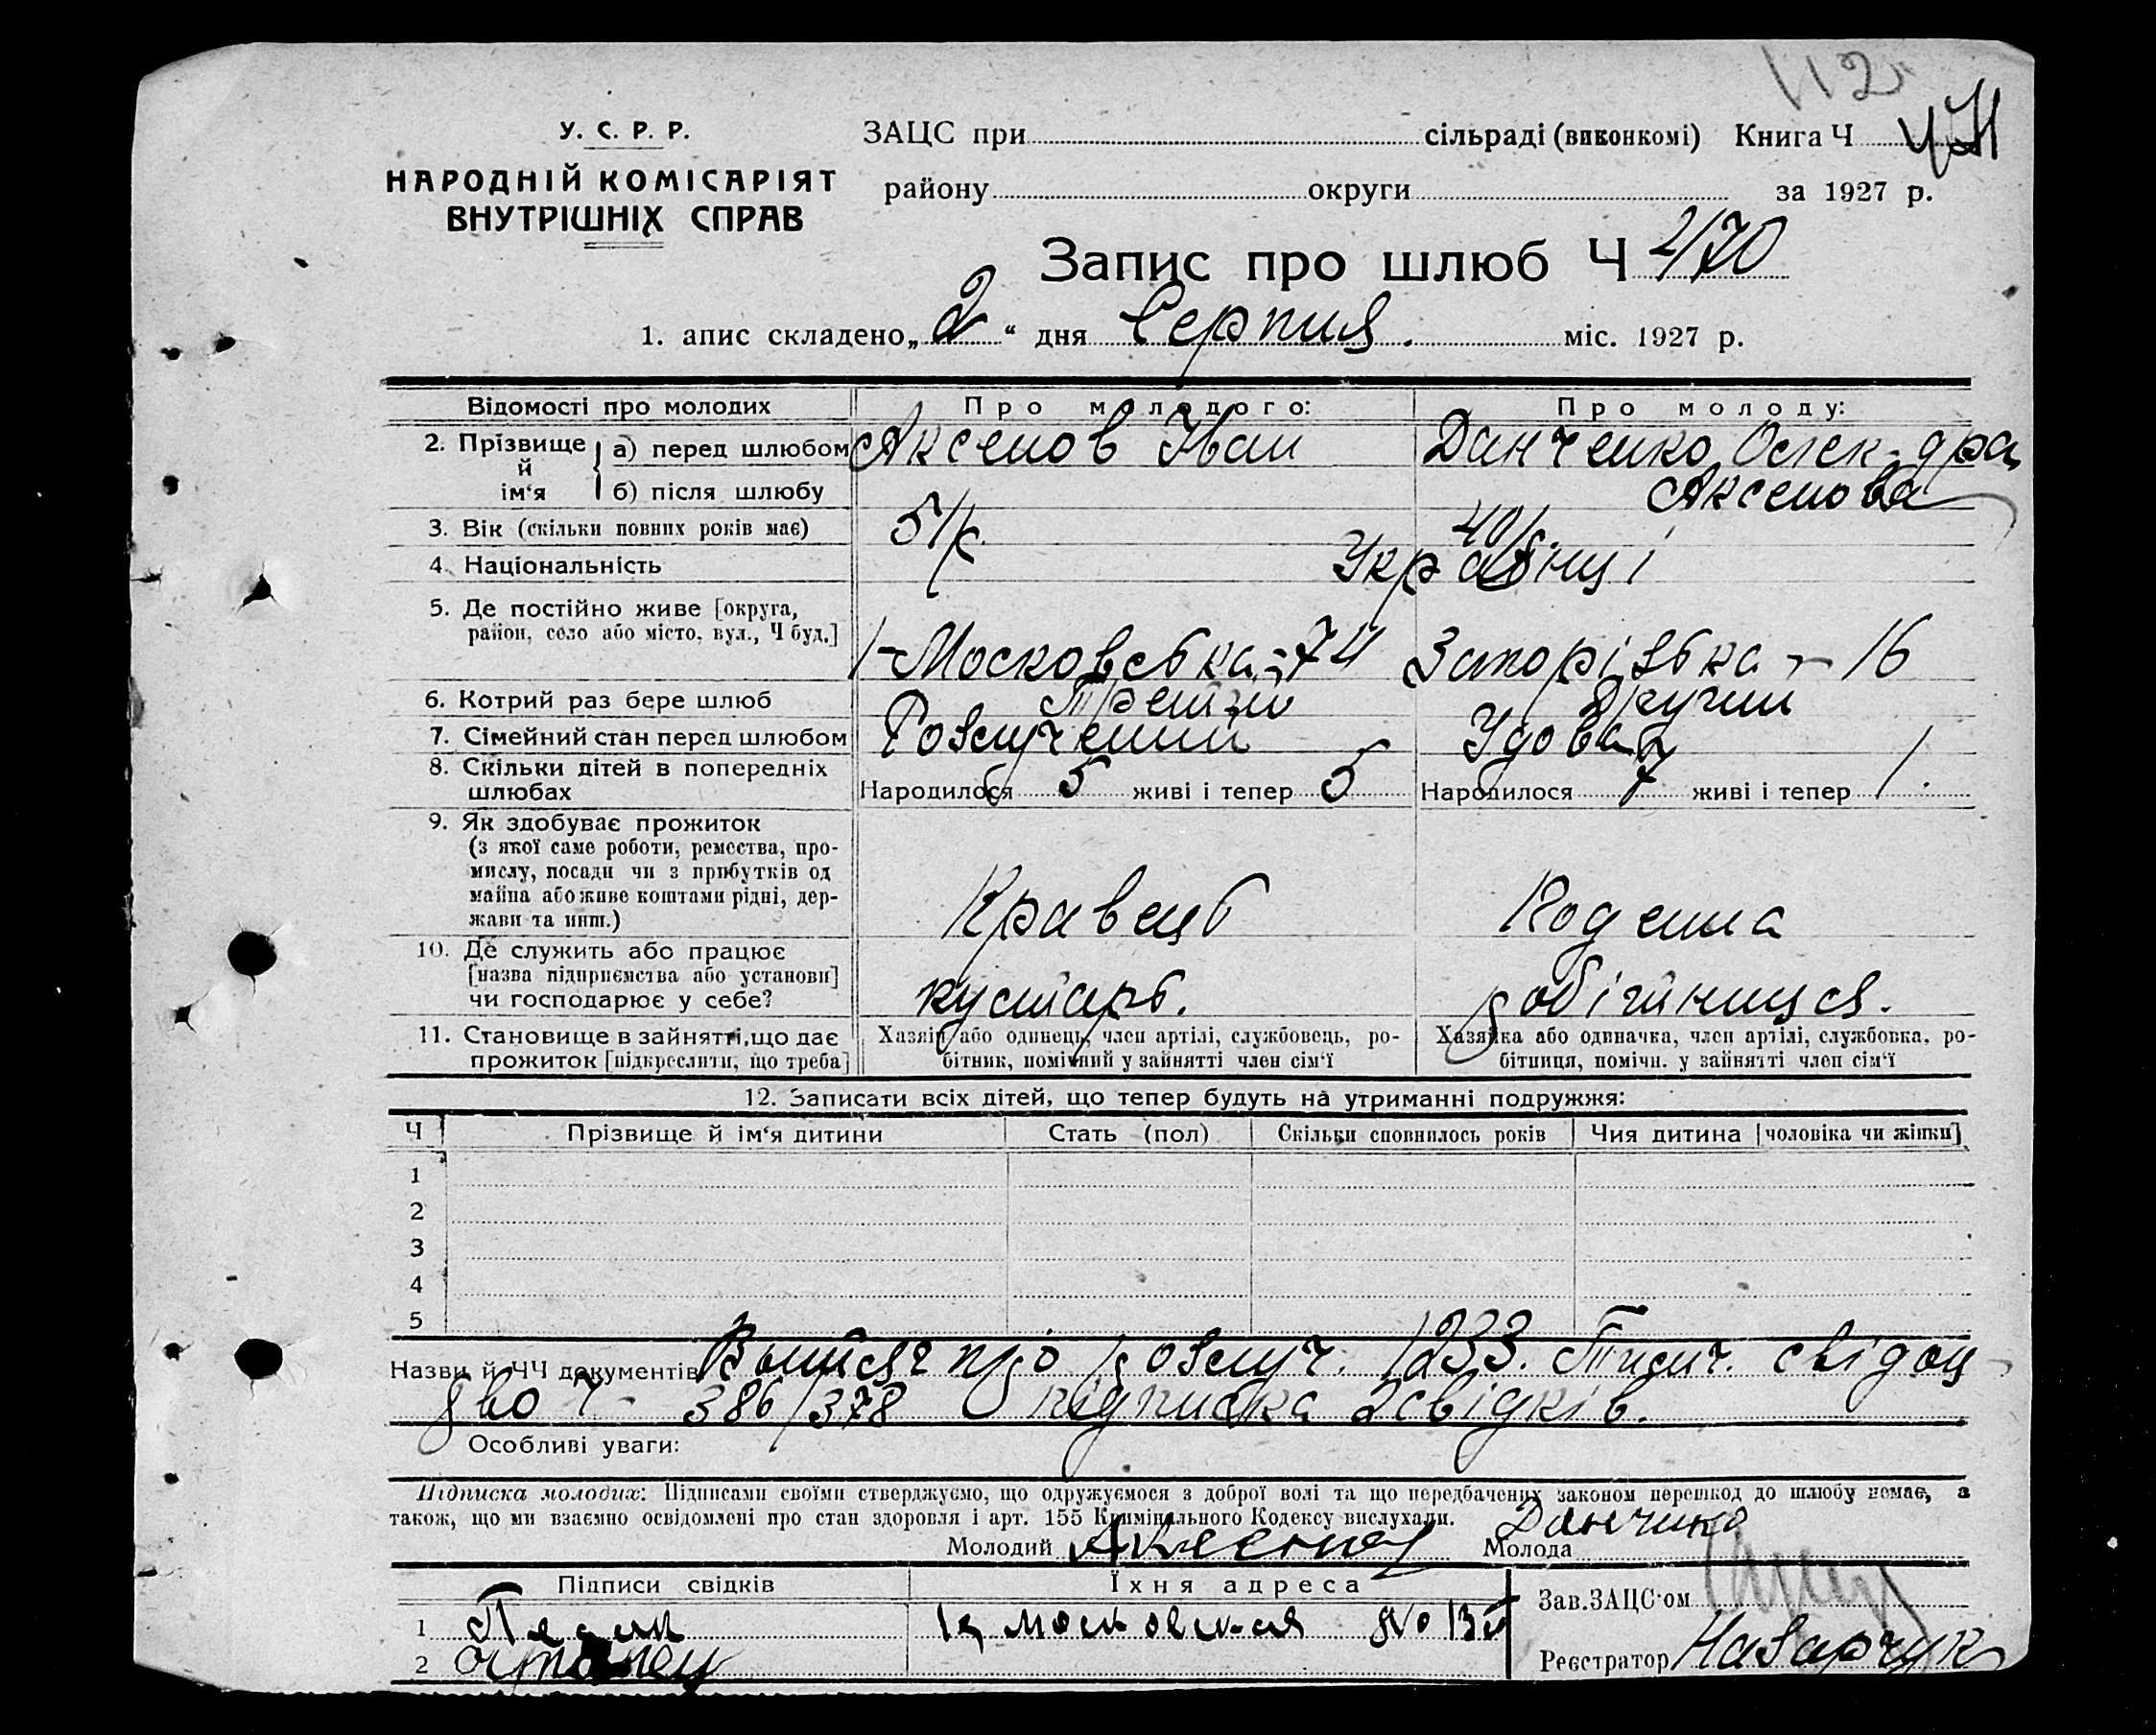 112
У. С. Р. Р.
НАРОДНІЙ КОМІСАРІЯТ
ВНУТРІШНІХ СПРАВ
ЗАЦС при сільраді (виконкомі) Книга Ч
району округи за 1927 р.
Запис про шлюб Ч 2/70
1. апис складено „2“ дня Серпня. міс. 1927 р.
Відомості про молодих Про молодого: Про молоду:
2. Прізвище й ім‘я а) перед шлюбом Аксенов Іван Данченко Олек-дра
б) після шлюбу Аксенова
3. Вік (скільки повних років має) 51 р. 40 р.
4. Національність Українці
5. Де постійно живе [округа,
район, село або місто, вул., Ч буд.] 1-Московська-74 Запорізька - 16
6. Котрий раз бере шлюб Третій Другий
7. Сімейний стан перед шлюбом Розлучений Удова
8. Скільки дітей в попередніх
шлюбах Народилося 5 живі і тепер 5 Народилося 7 живі і тепер 1.
9. Як здобуває прожиток
(з якої саме роботи, ремества, про-
мислу, посади чи з прибутків од
майна або живе коштами рідні, дер-
жави та инш.) Кравець Поденна
10. Де служить або працює
[назва підприємства або установи]
чи господарює у себе? кустарь. робітниця.
11. Становище в зайнятті, що дає Хазяїн або одинець, член артілі, службовець, ро- Хазяйка або одиначка, член артілі, службовка, ро-
прожиток [підкреслити, що треба] бітник, помічний у зайнятті член сім‘ї бітниця, помічн. у зайнятті член сім‘ї
12. Записати всіх дітей, що тепер будуть на утриманні подружжя:
Ч Прізвище й ім‘я дитини Стать (пол) Скільки сповнилось років Чия дитина [чоловіка чи жінки]
1
2
3
4
5
Назви й ЧЧ документів Вытяг про розлуч. 1233. свідоц-
дво Ч 386/378 підписка 2 свідків.
Особливі уваги:
Підписка молодих: Підписами своїми стверджуємо, що одружуємося з доброї волі та що передбачених законом перешкод до шлюбу немає, а
також, що ми взаємно освідомлені про стан здоровля і арт. 155 Кримінального Кодексу вислухали.
Молодий Аксенов Молода Данченко
Підписи свідків Їхня адреса Зав. ЗАЦС‘ом
1
2 Реєстратор Назарчук